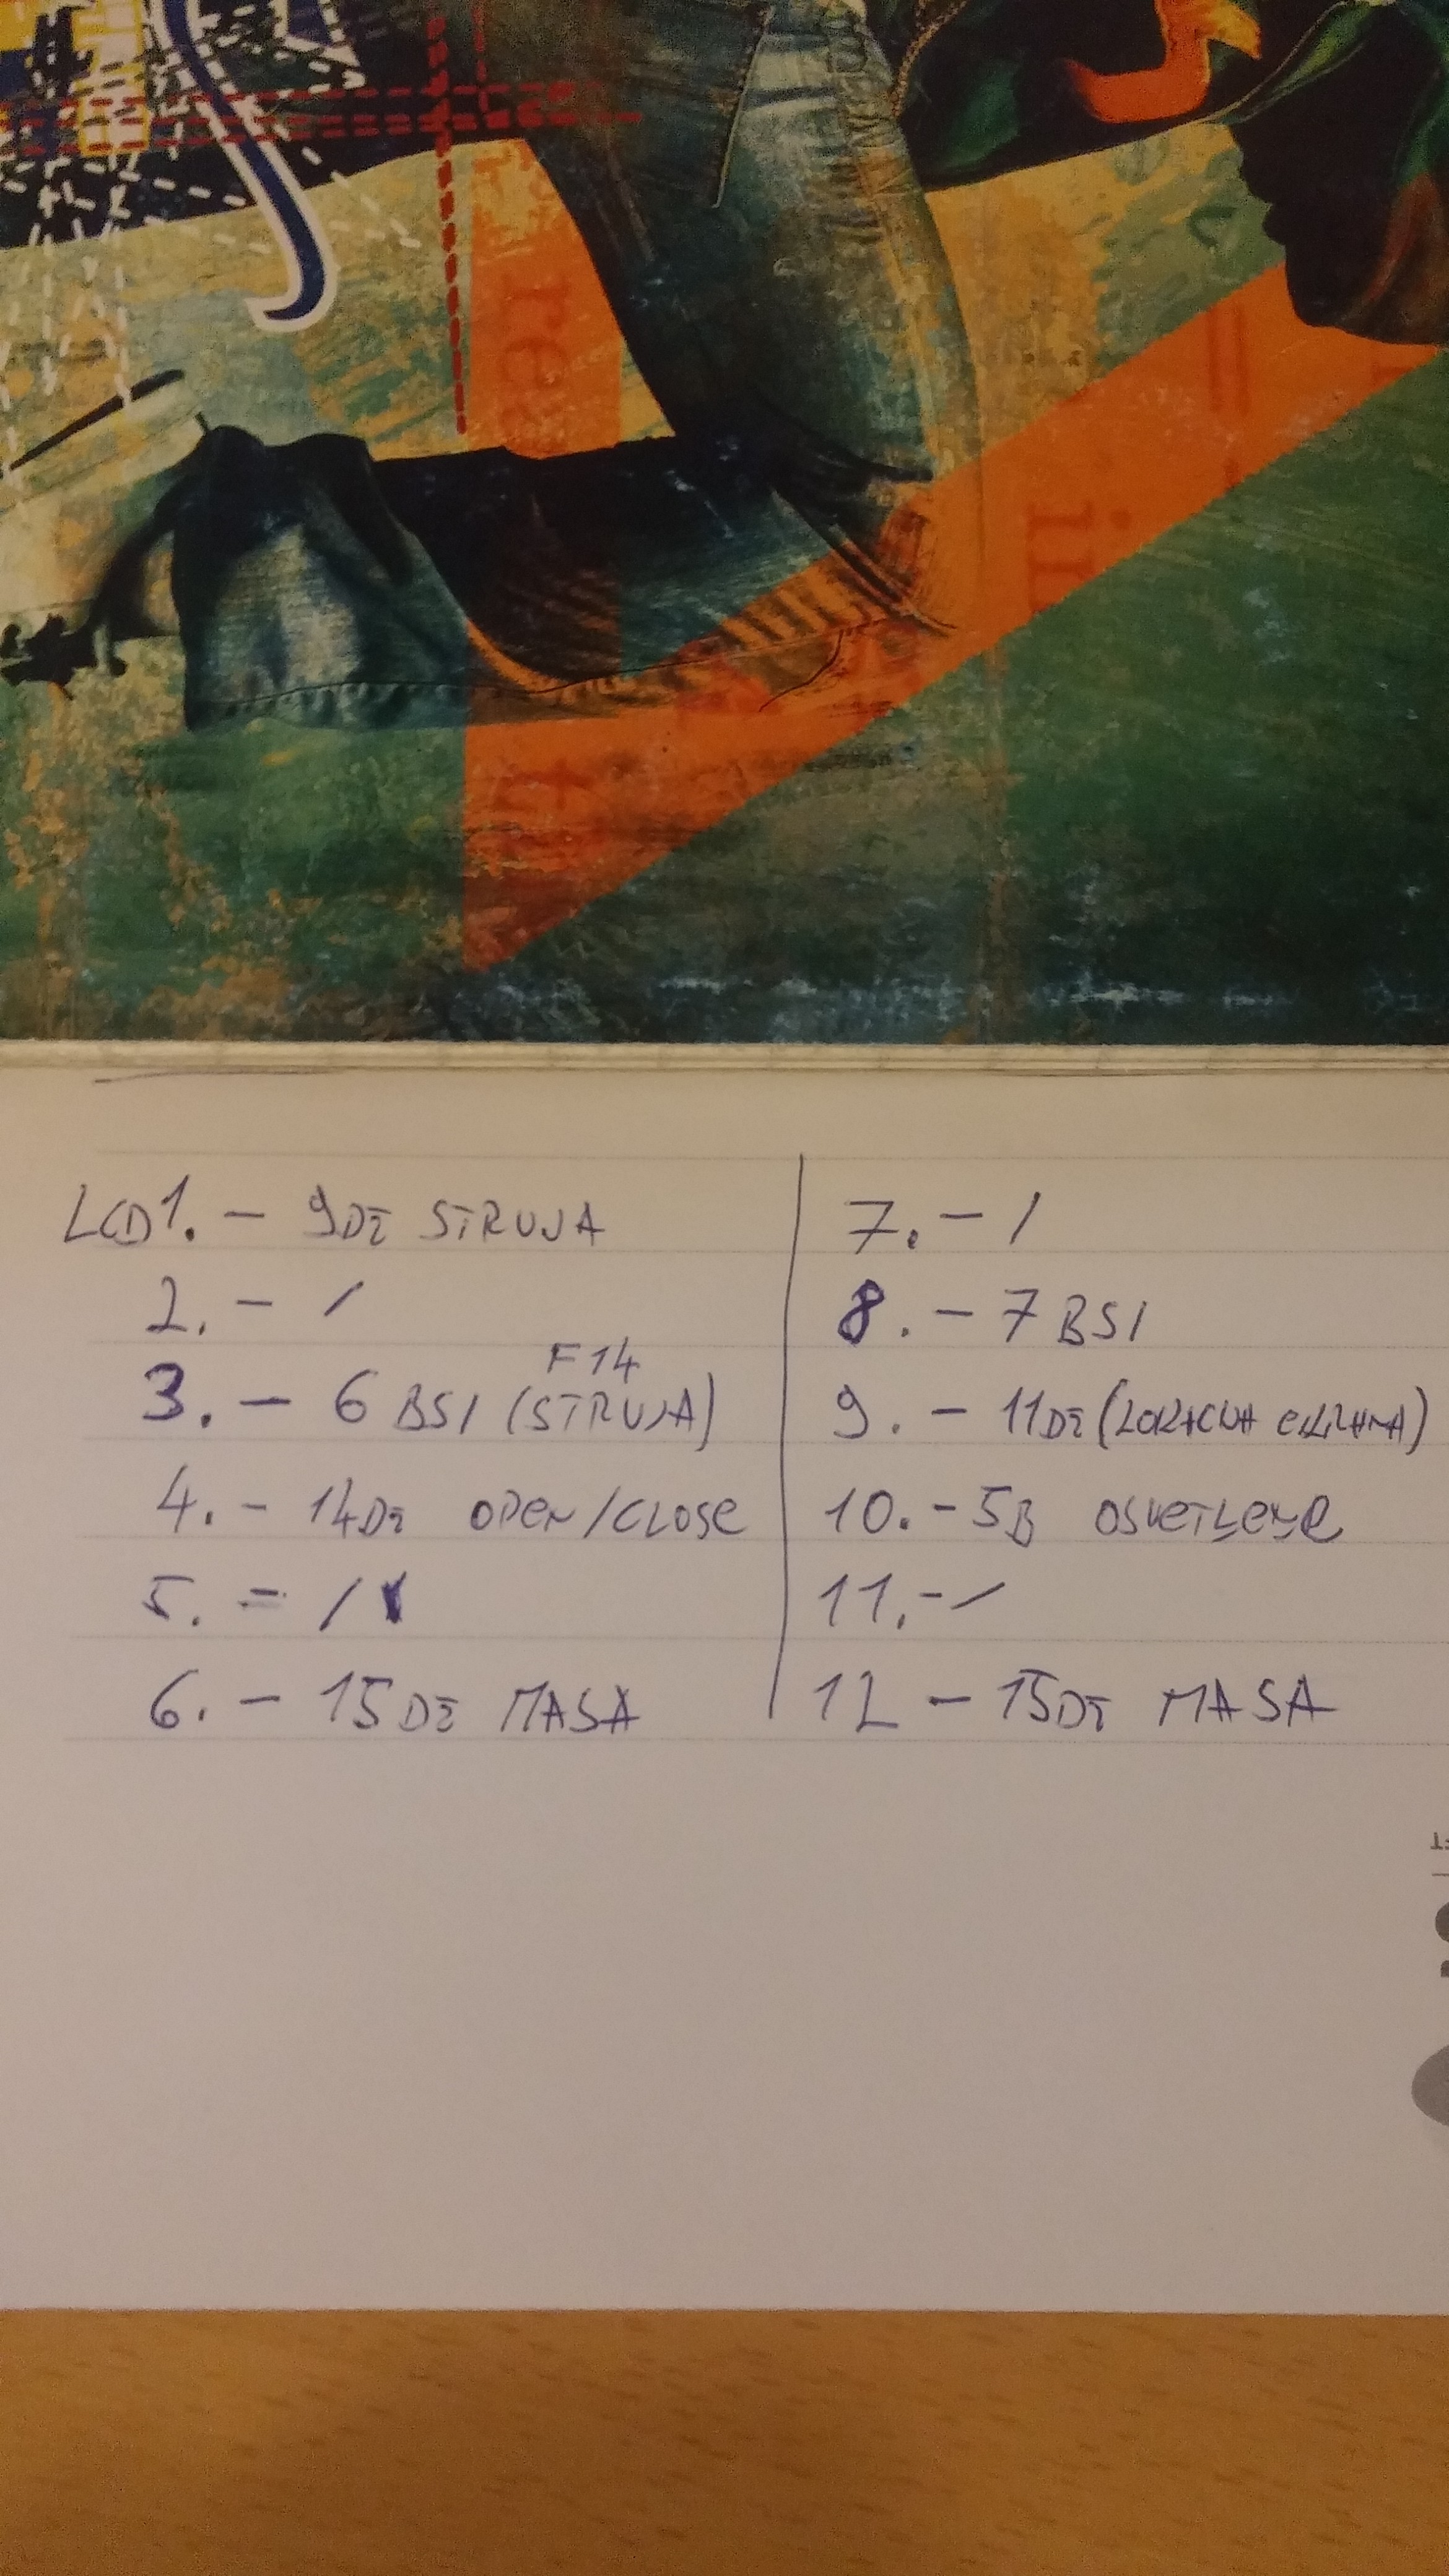 re
in
t
LCD 1. - 9DE STRUJA
2. - /
F14
3. - 6 BSI (STRUJA)
4. - 14DE OPEN/CLOSE
5. = /
6. - 15 DE MASA
7. - /
8. - 7 BSI
9. - 11DE
10. - 5B OSVETLENJE
11. - /
12 - 15DE MASA